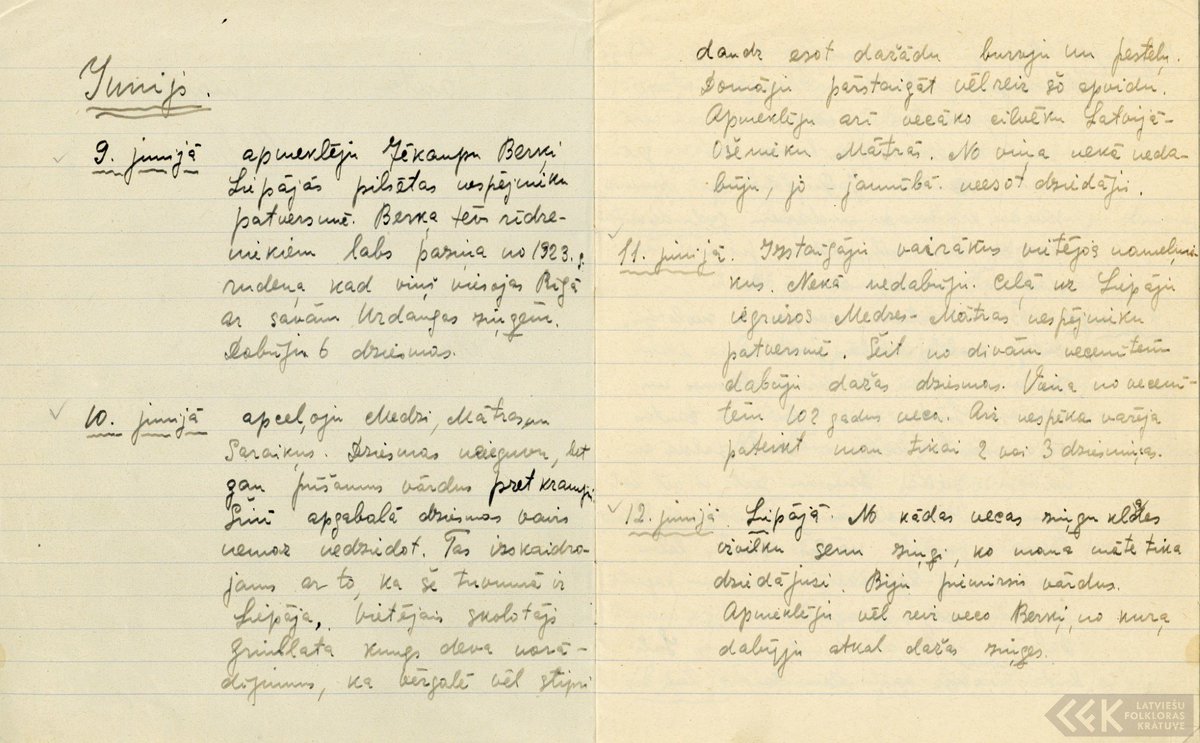 Junijs.
9. junijā apmeklēju Jēkaupu Berķi
Liepājās pilsētas nespējnieku
patversmē. Berķa tēv rīdze-
niekiem labs paziņa no 1923. g.
rudeņa kad viņš viesojas Rīgā
ar savām Urdangas ziņģēm.
Dabūju 6 dziesmas.
10. junijā apceļoju Medzi, Mātras un
Saraiķus. Dziesmas neieguvu, bet
gan pūšamus vārdus pret krampji
Šinī apgabalā dziesmas vairs
nemaz nedziedot. Tas izskaidro-
jams ar to, ka šē tuvumā ir
Liepāja. Vietējais skolotājs
kungs deva norā-
dījumus, ka Vērgalē vēl stipri
daudz esot dažādu burvju un pesteļ.
Domāju pārstaigāt vēlreiz šo apvidu.
Apmeklēju arī vecāko cilvēku Latvijā-
Ošenieku Mātrās. No viņa nekā neda-
būju, jo – jaunībā neesot dziedājis.
11. junijā. Izstaigāju vairākus vietējos nameļnie-
kus. Nekā nedabūju. Ceļā uz Liepāju
iegriežos Medzes-Mātras nespējnieku
patversmē. Šeit no divām vecenītēm
dabūju dažas dziesmas. Viena no vecenī-
tēm 102 gadus veca. Arī nespēka varēja
pateikt man tikai 2 vai 3 dziesmiņas.
12. junijā Liepājā. No kādas vecas ziņģu klades
izvilku senu ziņģi, ko mana māte tika
dziedājusi. Biju piemirsis vārdus.
Apmeklēju vēl reizi veco Berķi, no kuŗa
dabūju atkal dažas ziņģes.
LATVIEŠU
FOLKLORAS
KRĀTUVE